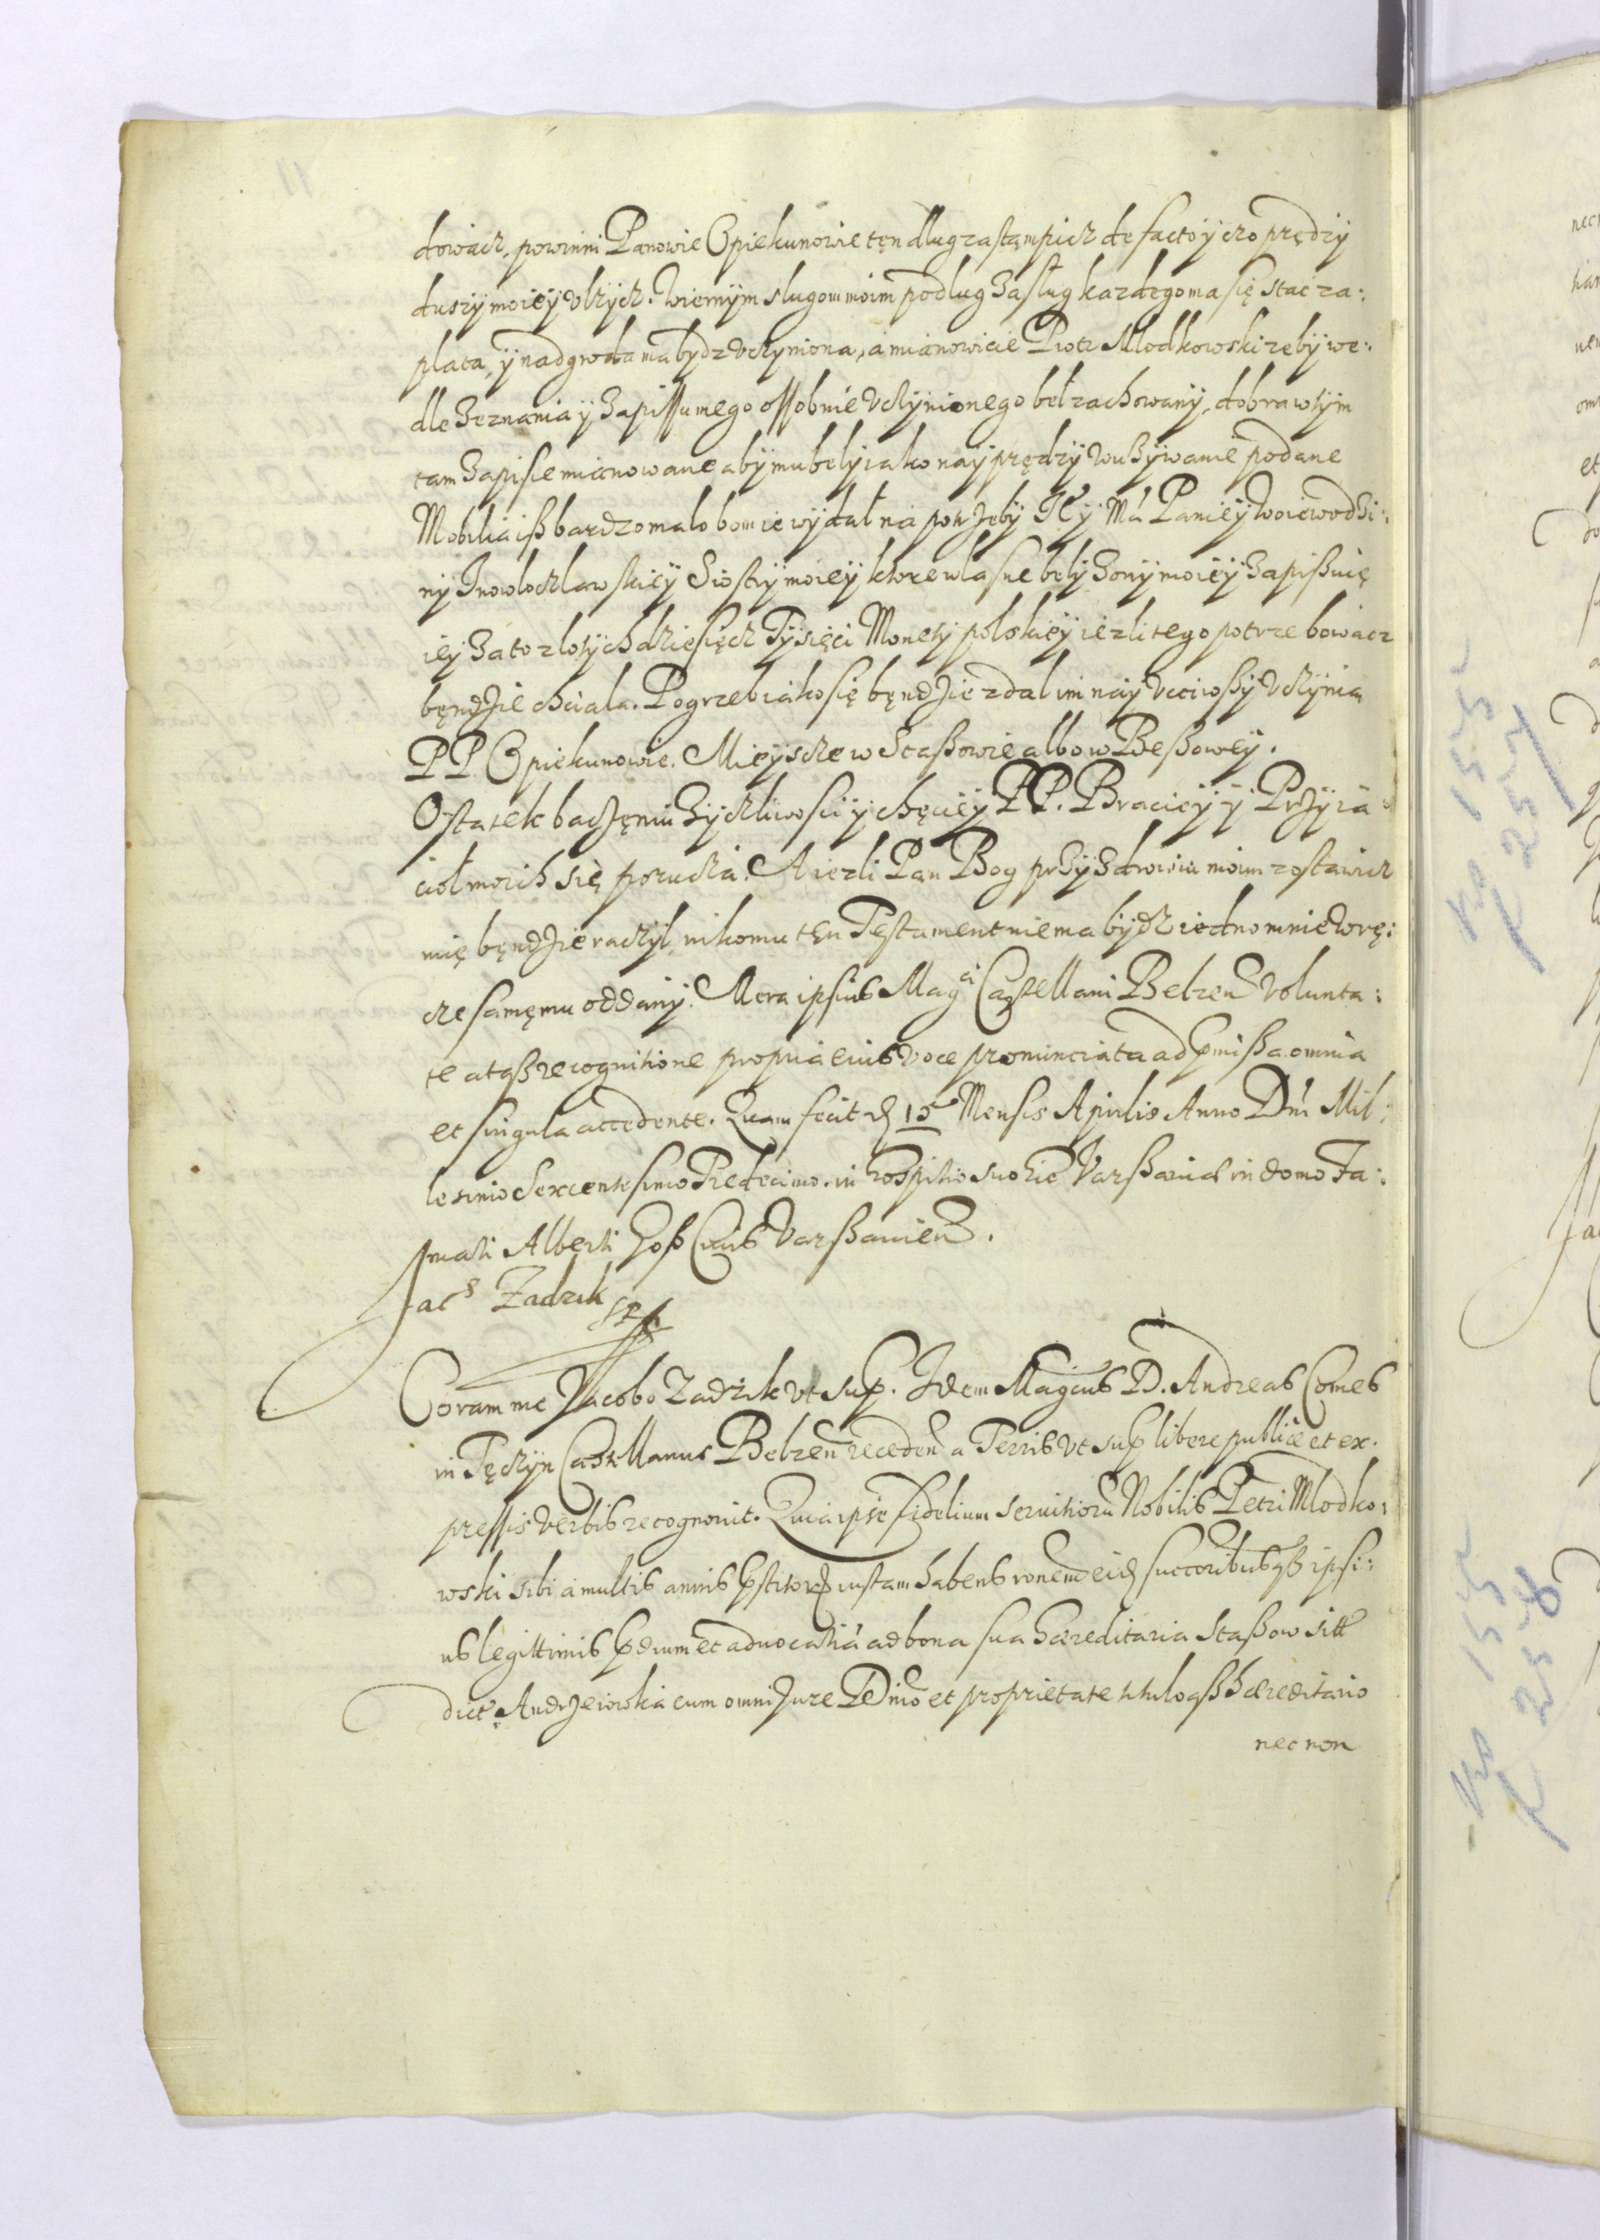 dowacz, powinni Panowie Opiekunowie tęn dlug zastąmpicz de facto ÿ czo prędzÿ
duszÿ moieÿ vlzÿcz. Wiernÿm slugom moim podlug Zaslug kazdego ma się stac za:
plata, ÿ nadgroda ma bÿdz vczÿniona, a mianowicie Piotr Mlodkowski zebÿ we:
dle Zeznania ÿ Zapissu mego ossobnie vczÿnionego bel zachowanÿ, dobra w tÿm
tam Zapisie mianowane abÿ mu belÿ iako naÿprędzÿ w uzÿwanie podane
Mobilia iß bardzo malo bom ie wÿdal na potrzebÿ Jeÿ Mci Panieÿ Woiewodzi:
nÿ Inowloczlawskieÿ Siostrÿ moieÿ ktore wlasne belÿ Zonÿ moieÿ Zapißuię
ieÿ Za to zlotÿch dziesięcz Tÿsięci Monetÿ polskieÿ iezli tego potrzebowacz
bęndzie chciala. Pogrzeb iako się bęndzie zdal im naÿ vcciwßÿ vczÿnią
PP Opiekunowie. Mieÿscze w Staßowie albo w Beßoweÿ.
Ostatek baczęniu Zÿczliwosci ÿ chęcieÿ PP. Bracieÿ ÿ Przÿia
ciol moich się porucza. A iezli Pan Bog przÿ Zdrowiu moim zostawicz
mię bęndzie raczÿl, nikomu tęn Testament nie ma bÿdz iedno mnie w rę:
cze samęmu oddanÿ. Mera ipsius Magci Castellani Belzen volunta:
te atqß recognitione propria eius voce pronunciata ad pmissa omnia
et singula accedente. Quam fecit d 15 Mensis Aprilis Anno Dni Mil:
lesimo Sexcentesimo Tredecimo. in hospitio suo hic Varßauiae in domo Fa:
mati Alberti Ciuis Varßauien.
Jacs Zadzik
Coram me Jacobo Zadzik vt sup. Idem Magcus D. Andreas Comes
in Tęczÿn Castellanus Belzen recedens a Terris vt sup libere publice et ex.
pressis verbis recognouit. Quia ipse fidelium seruitioru Nobilis Petri Mlodko:
wski sibi a multis annis pstitor iustam habens ronem eid succoribusqß ipsi:
us legittimis pdium et aduocatia ad bona sua haereditaria Staßow sitt
dict Andrzeiowska cum omni Jure Dnio et proprietate tituloqß haereditario
nec non